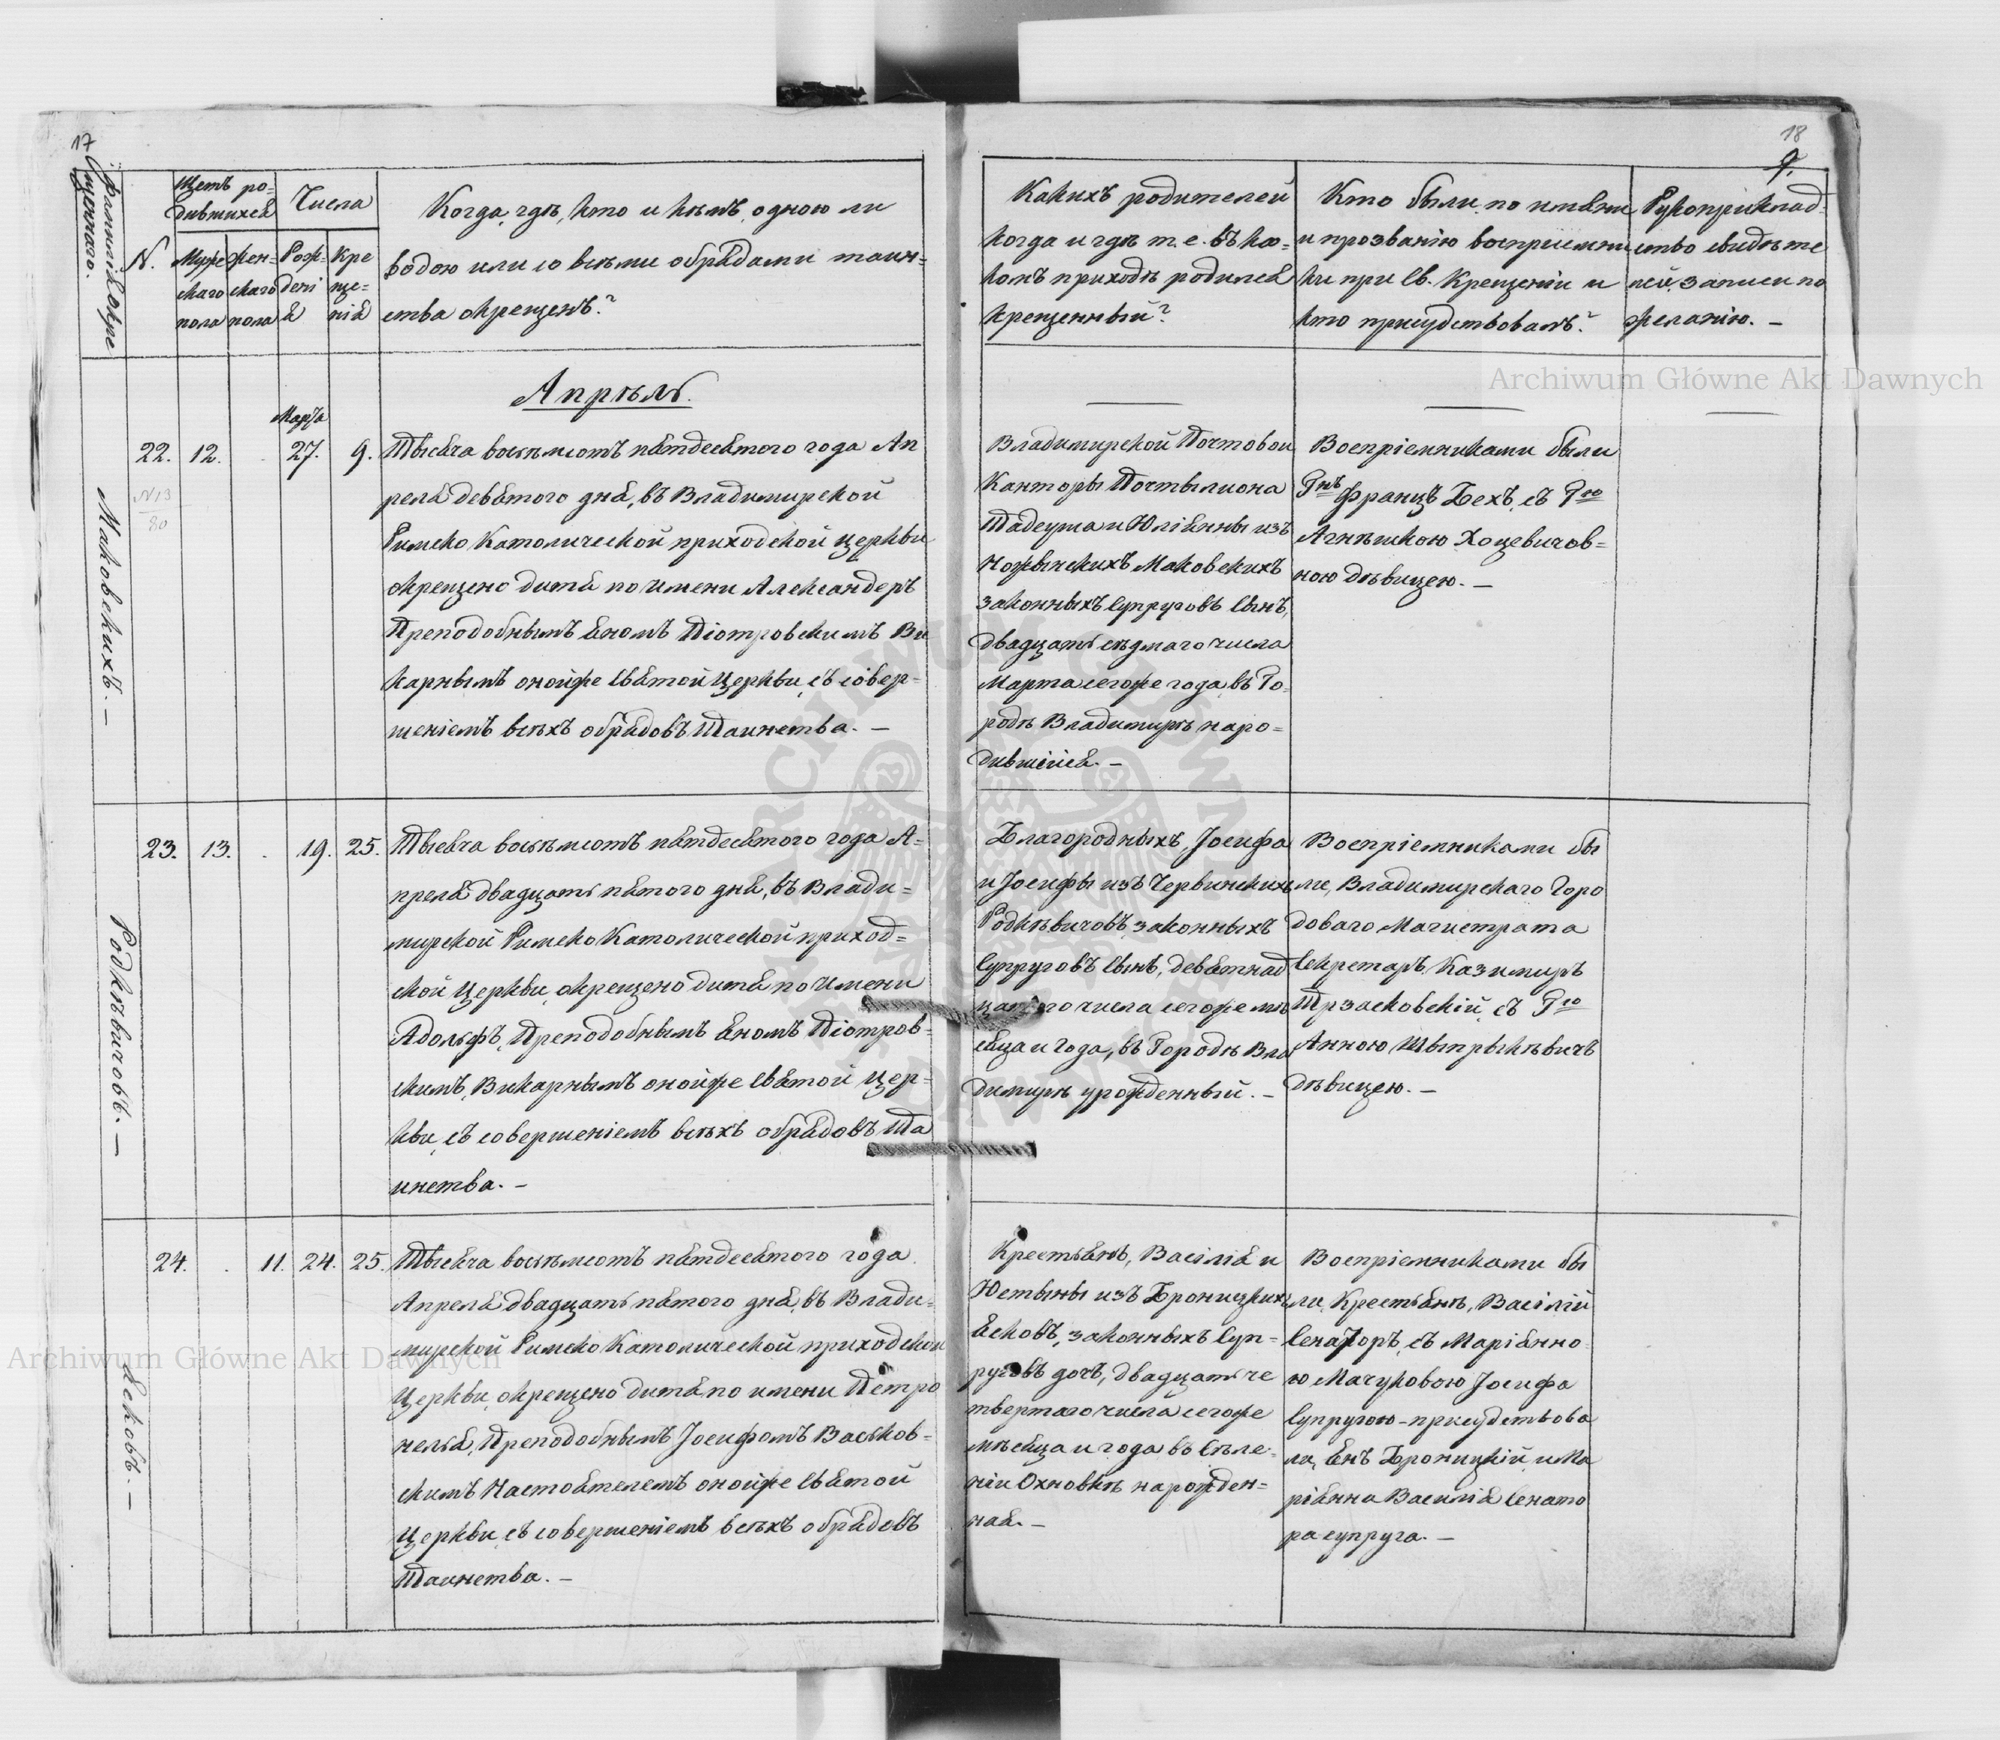 17
Фамилія окре
щеннаго.
N.
Щетъ ро-
дившихся
Муже
скаго
пола
жен-
скаго
пола
Числа
Рож-
дені
я
Кре
ще-
нія
Когда, гдѣ, кто и кѣмъ, одною ли
водою или со всѣми обрядами таин-
ства окрещенъ?
Апрѣль.
Маковскихъ. —
22.
N13
80
12.
Марта
27.
9.
Тысяча восѣмсотъ пятдесятого года Ап
реля девятого дня, въ Владимирской
Римско Католической приходской церкви
окрещено дитя по имени Александеръ
Преподобнымъ Яномъ Піотровскимъ Ви
карнымъ онойже святой Церкви, съ совер-
шеніемъ всѣхъ обрядовъ Таинства. —
Родкѣвичовъ. —
23.
13.
19.
25.
Тысяча восѣмсотъ пятдесятого года А-
преля двадцать пятого дня, въ Влади-
мирской Римско Католической приход-
ской Церкви, окрещено дитя по имени
Адольфъ, Преподобнымъ Яномъ Піотров-
скимъ, Викарнымъ онойже святой Цер-
кви, съ совершеніемъ всѣхъ обрядовъ Та
инства. —
Ясковъ. —
24.
11.
24.
25.
Тысяча восѣмсотъ пятдесятого года
Апреля двадцать пятого дня, въ Влади-
мирской Римско Католической приходской
Церкви, окрещено дитя по имени Петро
нелья, Преподобнымъ Іосифомъ Васьков-
скимъ Настоятелемъ онойже святой
Церкви, съ совершеніемъ всѣхъ обрядовъ
Таинства. —
18
9.
Какихъ родителей
когда и гдѣ т. е. въ ка-
комъ приходѣ родился
крещенный?
Кто были, по имени
и прозванію воспріемни
ки при Св. Крещеніи и
кто присудствовалъ?
Рукоприклад-
ство свидѣте
лей, записи по
желанію. —
Владимирской Почтовой
Канторы Почтыліона
Тадеуша и Юліянны изъ
Ножынскихъ Маковскихъ
законныхъ супруговъ сынъ,
двадцать сѣдмаго числа
Марта сегоже года, въ Го-
родѣ Владимирѣ наро-
дившійся. —
Воспріемниками были
Гнъ Францъ Бехъ, съ Гю
Агнѣшкою Хоцевичов-
ною дѣвицею. —
Благородныхъ, Іосифа
и Іосифы изъ Червинскихъ
Родкѣвичовъ, законныхъ
супруговъ сынъ, девятнад
цатого числа сегоже мѣ
сяца и года, въ Городѣ Вла
димирѣ урожденный. —
Воспріемниками бы
ли, Владимирскаго Горо
доваго Магистрата
Секретарь Казимиръ
Трзасковскій, съ Гю
Анною Штрыкѣвичъ
дѣвицею. —
Крестьянъ, Василія и
Юстыны изъ Броницкихъ
Ясковъ, законныхъ суп-
руговъ дочь, двадцать че
твертаго числа сегоже
мѣсяца и года въ Селе-
ніи Охновкѣ нарожден-
ная. —
Воспріемниками бы
ли, Крестьянъ, Василій
Сенаторъ, съ Маріянно
ю Мачуковою Іосифа
Супругою - присудствова
ли, Янъ Броницкій, и Ма
ріянна Василія Сенато
ра супруга. —
Archiwum Główne Akt Dawnych
Archiwum Główne Akt Dawnych